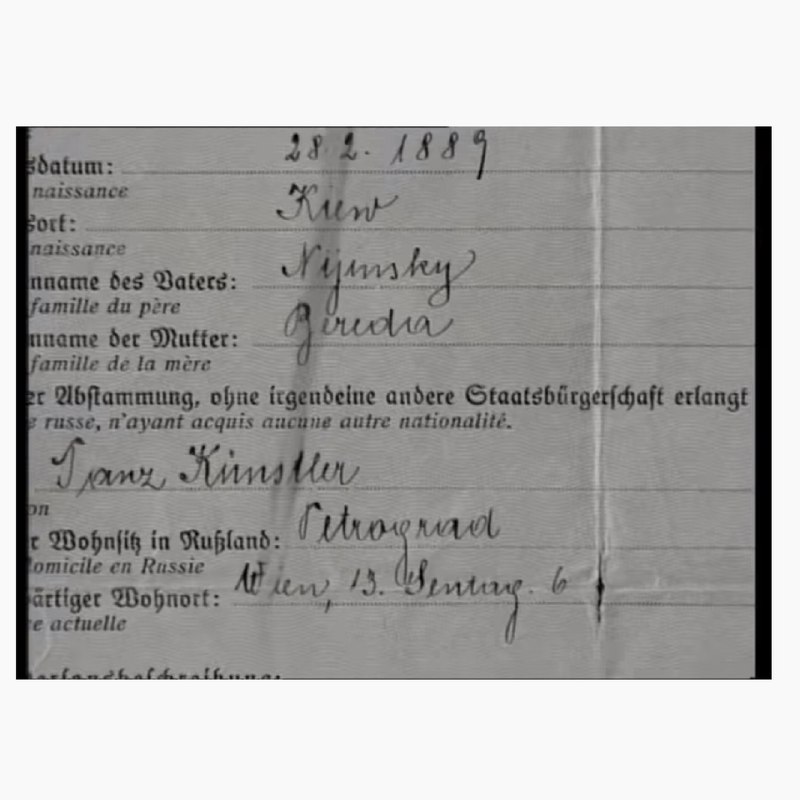 sdatum: 28 2. 1889
naissance
sort: Kiew
naissance
nname des Vaters: Nijinsky
famille du père
nname der Mutter: Bereda
famille de la mère
er Abstammung, ohne irgendeine andere Staatsbürgerschaft erlangt
e russe, n'ayant acquis aucune autre nationalité.
Tanz Künstler
on
r Wohnsitz in Rußland: Petrograd
domicile en Russie
ärtiger Wohnort: Wien, 13. 6
e actuelle